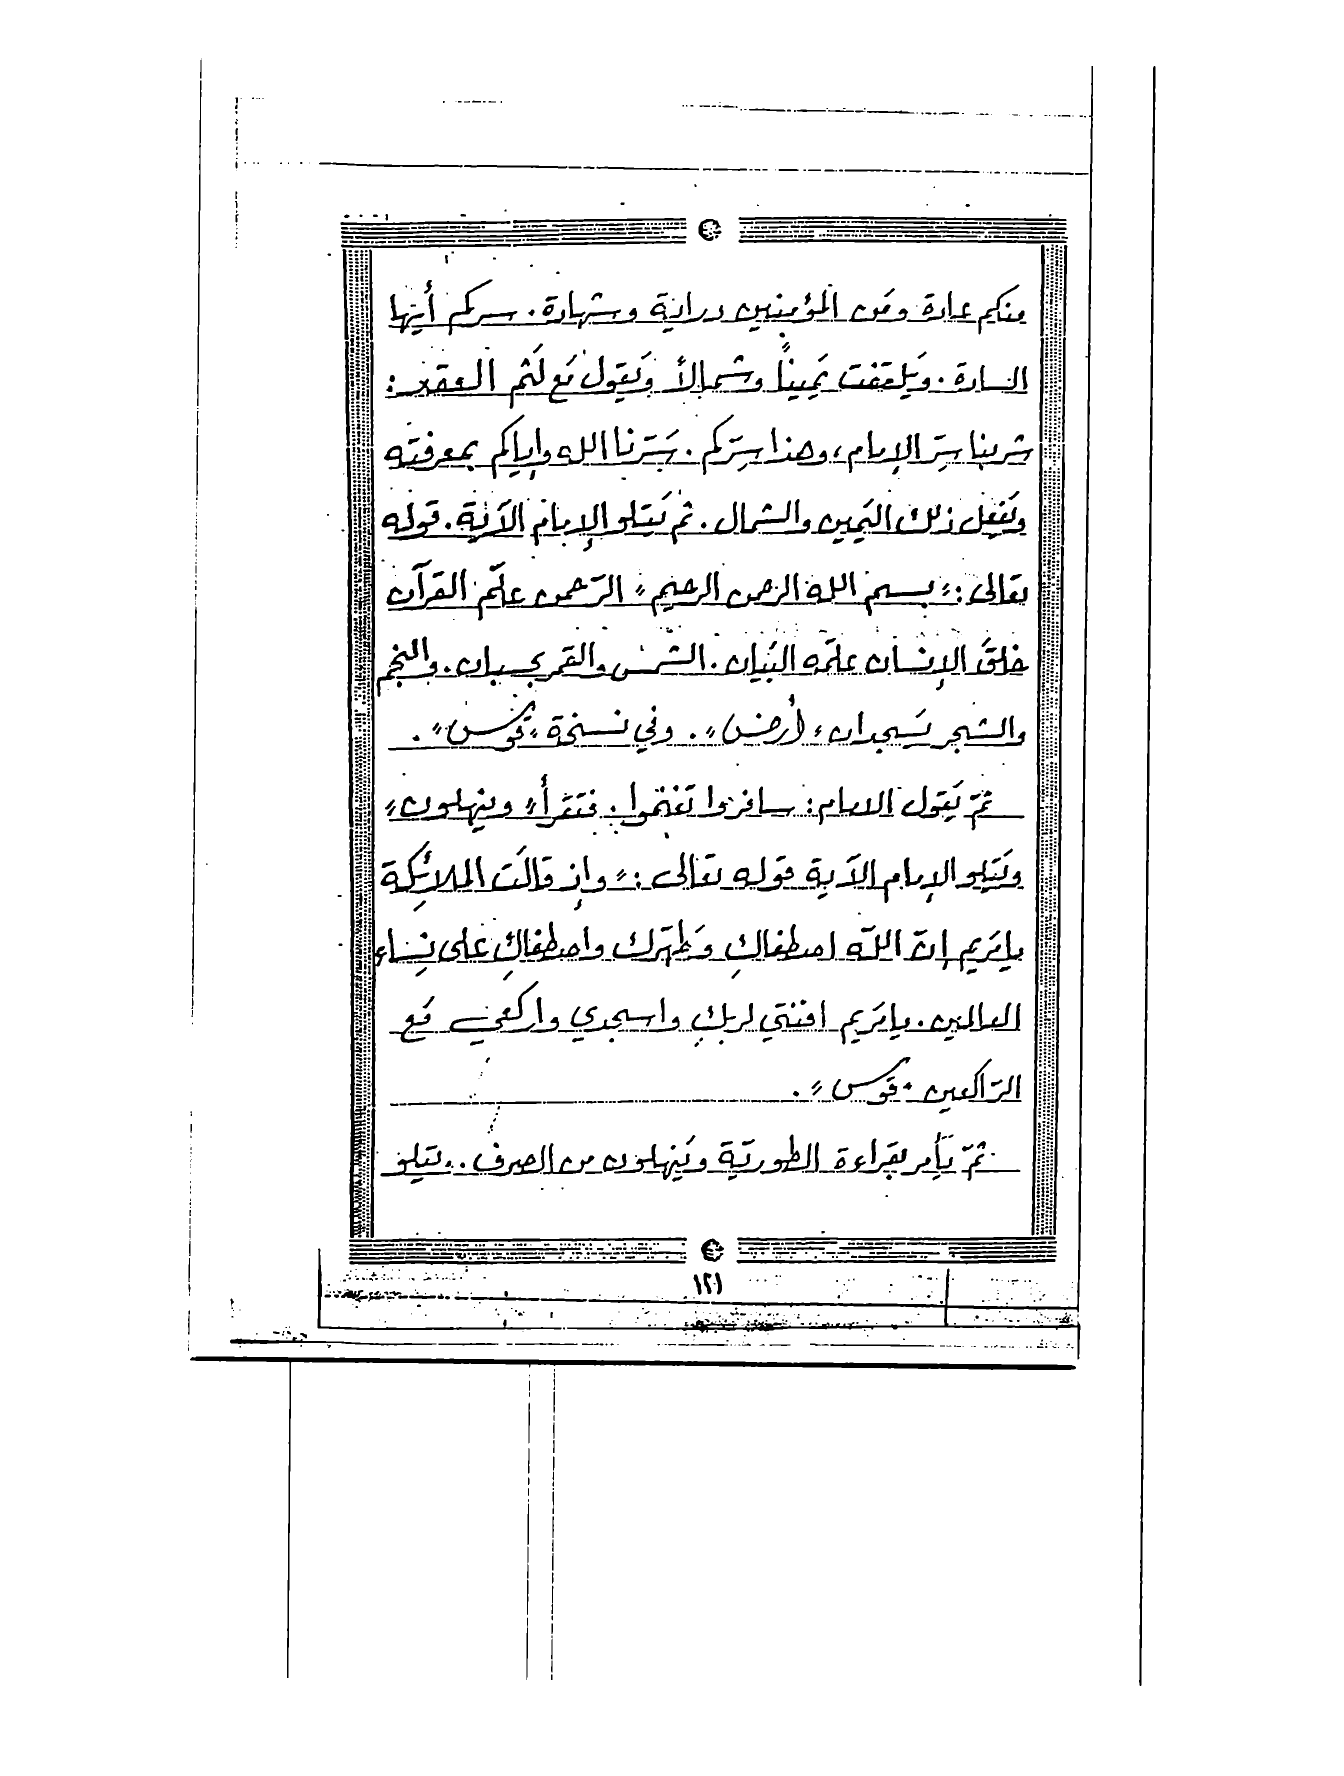 منكم عادة ومَن المؤمنين دراية وشهادة . سركم أيّها
السادة . ويَلتفت يَميناً وشمالاً ويَقول مَع لَثم العقد :
شربنا سِرّ الإمام ، وهذا سِرّكم . سَتَرنا الله وإياكم بمعرفته
ويَفعل ذلك اليَمين والشمال . ثم يَتلو الإمام الآية . قوله
تعالى : « بسم الله الرحمن الرحيم » الرّحمن علّم القرآن
خلقَ الإنسان علمّه البَيان . الشمس والقمر بحسبان . والنجم
والشجر يَسجدان ، (أرض) » . وفي نسخة « قوس » .
ثمّ يَقول الامام : سافروا تَغنموا . فتقرأ » وينهلون »
ويَتلو الإمام الآية قوله تعالى : « وإذ قالَت الملائِكة
يامَريم إنّ اللّه اصطفاكِ وطَهّرك واصطفاكِ على نِساءِ
العالمين . يامَريم اقنتي لربكِ واسجدي واركعي مَع
الرّاكعين • قوس » .
ثمّ يَأمر بقراءة الطوريّة ويَنهلون من الصرف . ويتلو
١٢١